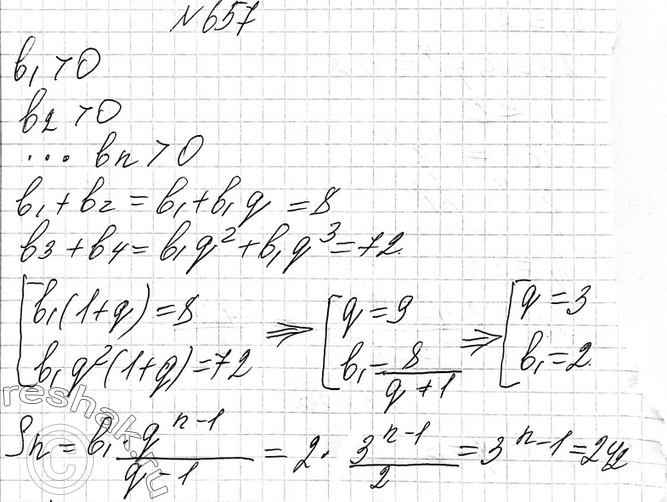 №657
b₁ > 0
b₂ > 0
... bn > 0
b₁ + b₂ = b₁ + b₁q = 8
b₃ + b₄ = b₁q² + b₁q³ = 72.
[b₁(1+q) = 8 ⇒ [q = 9 ⇒ [q = 3
b₁q²(1+q) = 72 b₁ = 8/(q+1) b₁ = 2.
Sn = b₁ q^(n-1)/(q-1) = 2 · 3^(n-1)/2 = 3^(n-1) = 242
reshak.ru